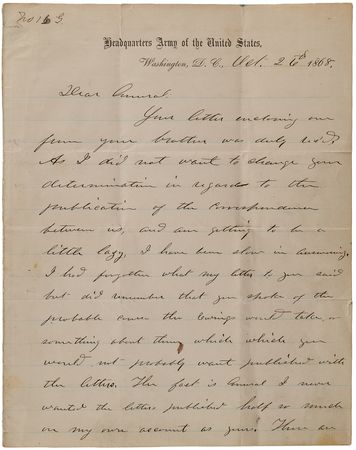 Headquarters Army of the United States,
Washington, D. C., Oct. 26th 1868.
Dear General:
Your letter enclosing one
from your brother was duly rec'd.
As I did not want to change your
determination in regard to the
publication of the correspondence
between us, and am getting to be a
little lazy, I have been slow in answering.
I had forgotten what my letter to you said
but did remember that you spoke of the
probable course the Ewings would take, or
something about them which which you
would not probably want published with
the letters. The fact is General I never
wanted the letters published half so much
on my own account as yours. There are